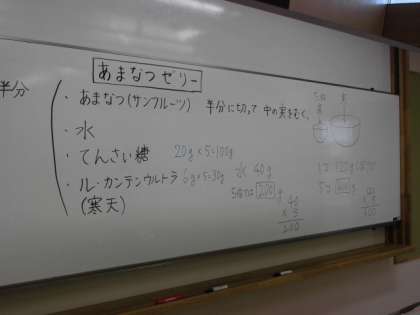 あまなつゼリー
半分
・あまなつ(サンフルーツ) 半分に切って 中の実をむく。
・水
・てんさい糖 20g×5=100g
・ル・カンテンウルトラ 6g×5=30g 水 40g
(寒天) 5倍は200g
40
×5
200